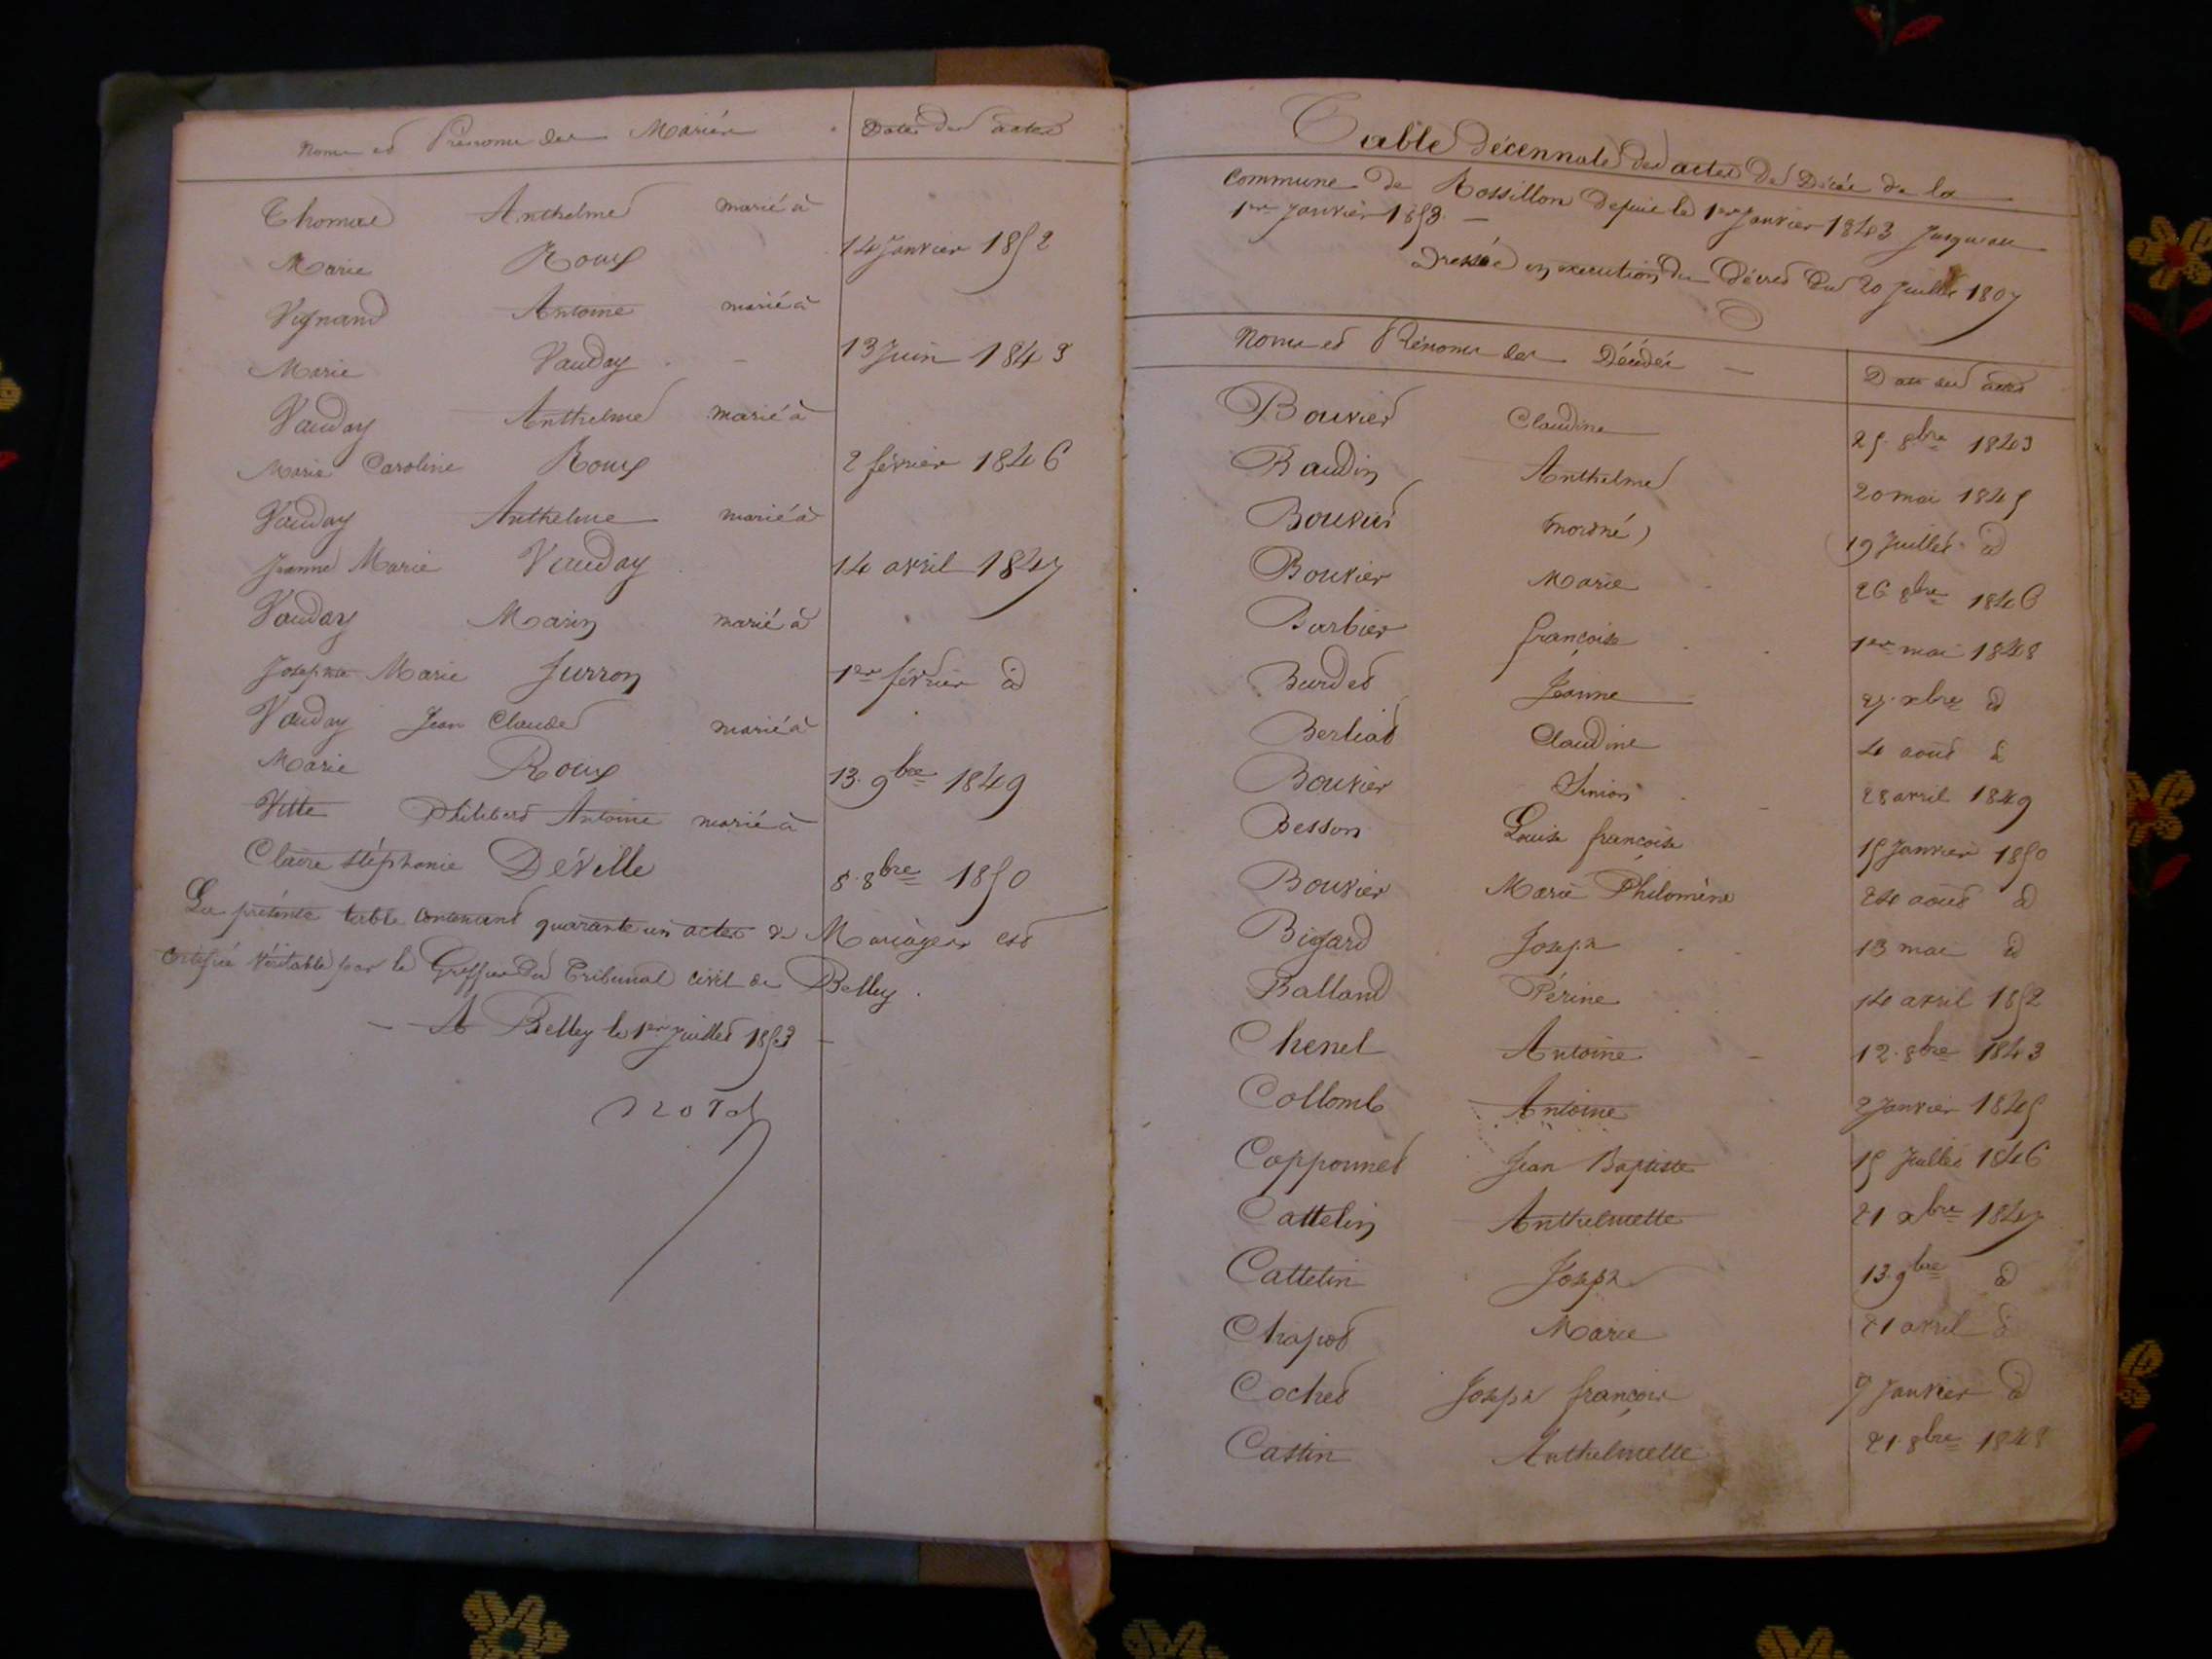 Noms et Prénoms des Mariés
Dates des actes
Thomas Anthelme marié à
Marie Roux 14 Janvier 1852
Vignand Antoine marié à
Marie Vauday 13 Juin 1843
Vauday Anthelme marié à
Marie Caroline Roux 2 février 1846
Vauday Anthelme marié à
Jeanne Marie Vauday 14 avril 1847
Vauday Marin marié à
Josephte Marie Jurron 1er février d
Vauday Jean Claude marié à
Marie Roux 13. 9bre 1849
Vitte Philibert Antoine marié à
Claire Stéphanie Déville 8. 8bre 1850
La présente table contenant quarante un actes de Mariages est
certifié véritable par le Greffier du Tribunal civil de Belley.
A Belley le 1er Juillet 1853
Table décennale des actes de Décès de la
commune de Rossillon depuis le 1er Janvier 1843 Jusqu'au
1er Janvier 1853.
Dressée en execution du Décret du 20 Juillet 1807
Noms et Prénoms des Décédés
Date des actes
Bouvier Claudine 25. 8bre 1843
Baudin Anthelme 20 mai 1845
Bouvier (mort né) 19 Juillet d
Bouvier Marie 26 8bre 1846
Barbier françoise 1er mai 1848
Burdet Jeanne 27. xbre d
Berliat Claudine 4 août d
Bouvier Simon 28 avril 1849
Besson Louise françoise 15 Janvier 1850
Bouvier Marie Philomène 24 août d
Bigard Joseph 13 mai d
Balland Périne 14 avril 1852
Chenel Antoine 12. 8bre 1843
Collomb Antoine 2 Janvier 1845
Copponnet Jean Baptiste 15 Juillet 1846
Cattelin Anthelmette 21 xbre 1847
Cattelin Joseph 13. 9bre d
Chapot Marie 21 avril d
Cochet Joseph françois 7 Janvier d
Castin Anthelmette 21. 8bre 1848